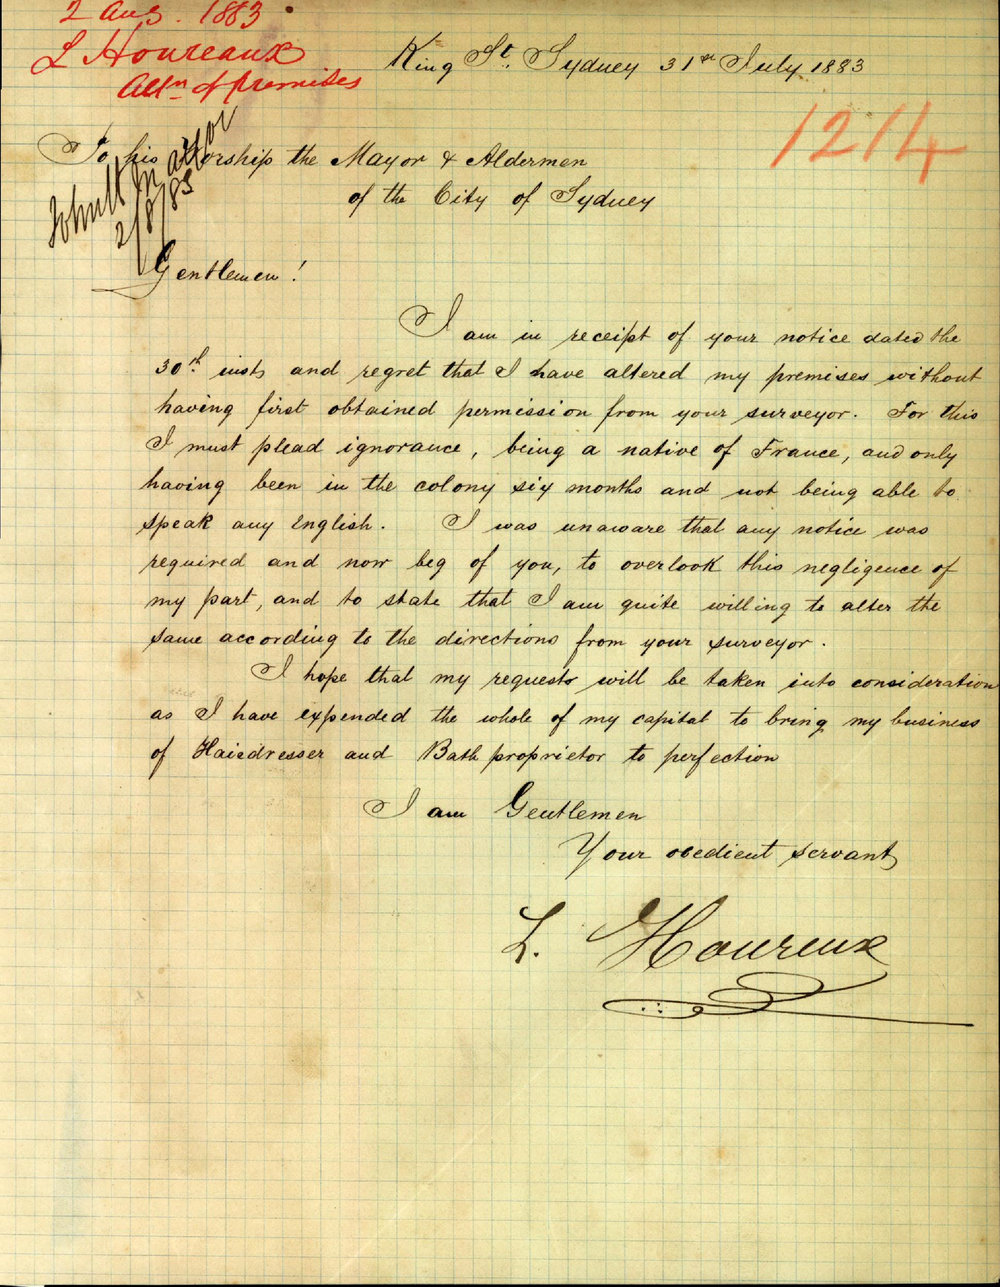 2 Aug. 1883
L Houreaux
Altn of premises
King St. Sydney 31st July 1883
1214
To his Worship the Mayor & Aldermen
of the City of Sydney
2/8/83
Gentlemen!
I am in receipt of your notice dated the
30th inst, and regret that I have altered my premises without
having first obtained permission from your surveyor. For this
I must plead ignorance, being a native of France, and only
having been in the colony six months and not being able to
speak any English. I was unaware that any notice was
required and now beg of you, to overlook this negligence of
my part, and to state that I am quite willing to alter the
same according to the directions from your surveyor.
I hope that my requests will be taken into consideration
as I have expended the whole of my capital to bring my business
of Hairdresser and Bath proprietor to perfection
I am Gentlemen
Your obedient servant
L. Houreux